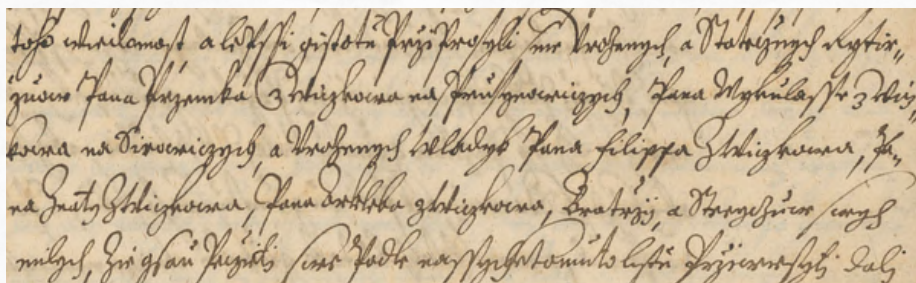 toho wiedomost, a lepssi gistotu Prziprosyli sme Vrozenych, a Statecznych Rytir„
zuow Pana Przemka Z Wiczkowa na Prusynowiczych, Pana Mykulasse z Wicz„
kowa na Sirowiczych, a Vrozenych Wladyk Pana Filippa Z Wiczkowa, Pa„
na Znaty Z Wiczkowa, Pana Orkleba z Wiczkowa, Bratrzy, a Streyczuw swych
milych, Zie gsau Peczieti swe Podle nassych etomuto listu Prziwiesyly Dalj